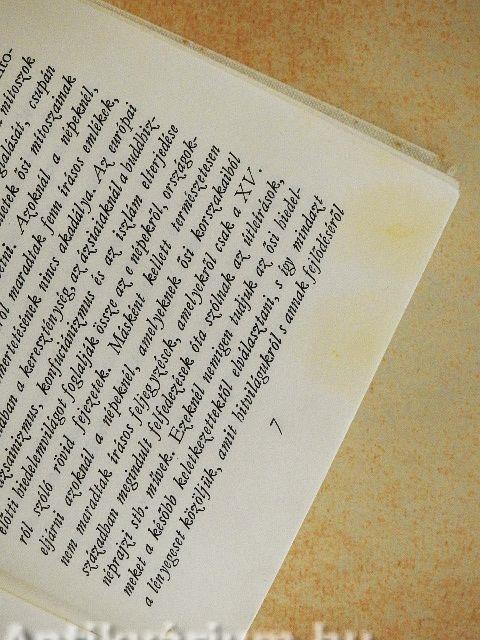 mítoszok
foglalását, csupán
ősi mitoszainak
Azoknál a népeknél,
maradtak fenn írásos emlékek,
ismertetésének nincs akadálya. Az európai
a kereszténység, az ázsiaiaknál a buddhiz-
konfucianizmus és az iszlám elterjedése
előtti hiedelemvilágot foglalják össze az e népekről, országok-
ról szóló rövid fejezetek. Másként kellett természetesen
eljárni azoknál a népeknél, amelyeknek ősi korszakaiból
nem maradtak írásos feljegyzések, amelyekről csak a XV.
században megindult felfedezések óta szólnak az útleírások,
néprajzi stb. művek. Ezeknél nemigen tudjuk az ősi hiedel-
meket a később keletkezettektől elválasztani, s így mindazt
a lényegeset közöljük, amit hitvilágukról s annak fejlődéséről
7
Antikvárium.hu